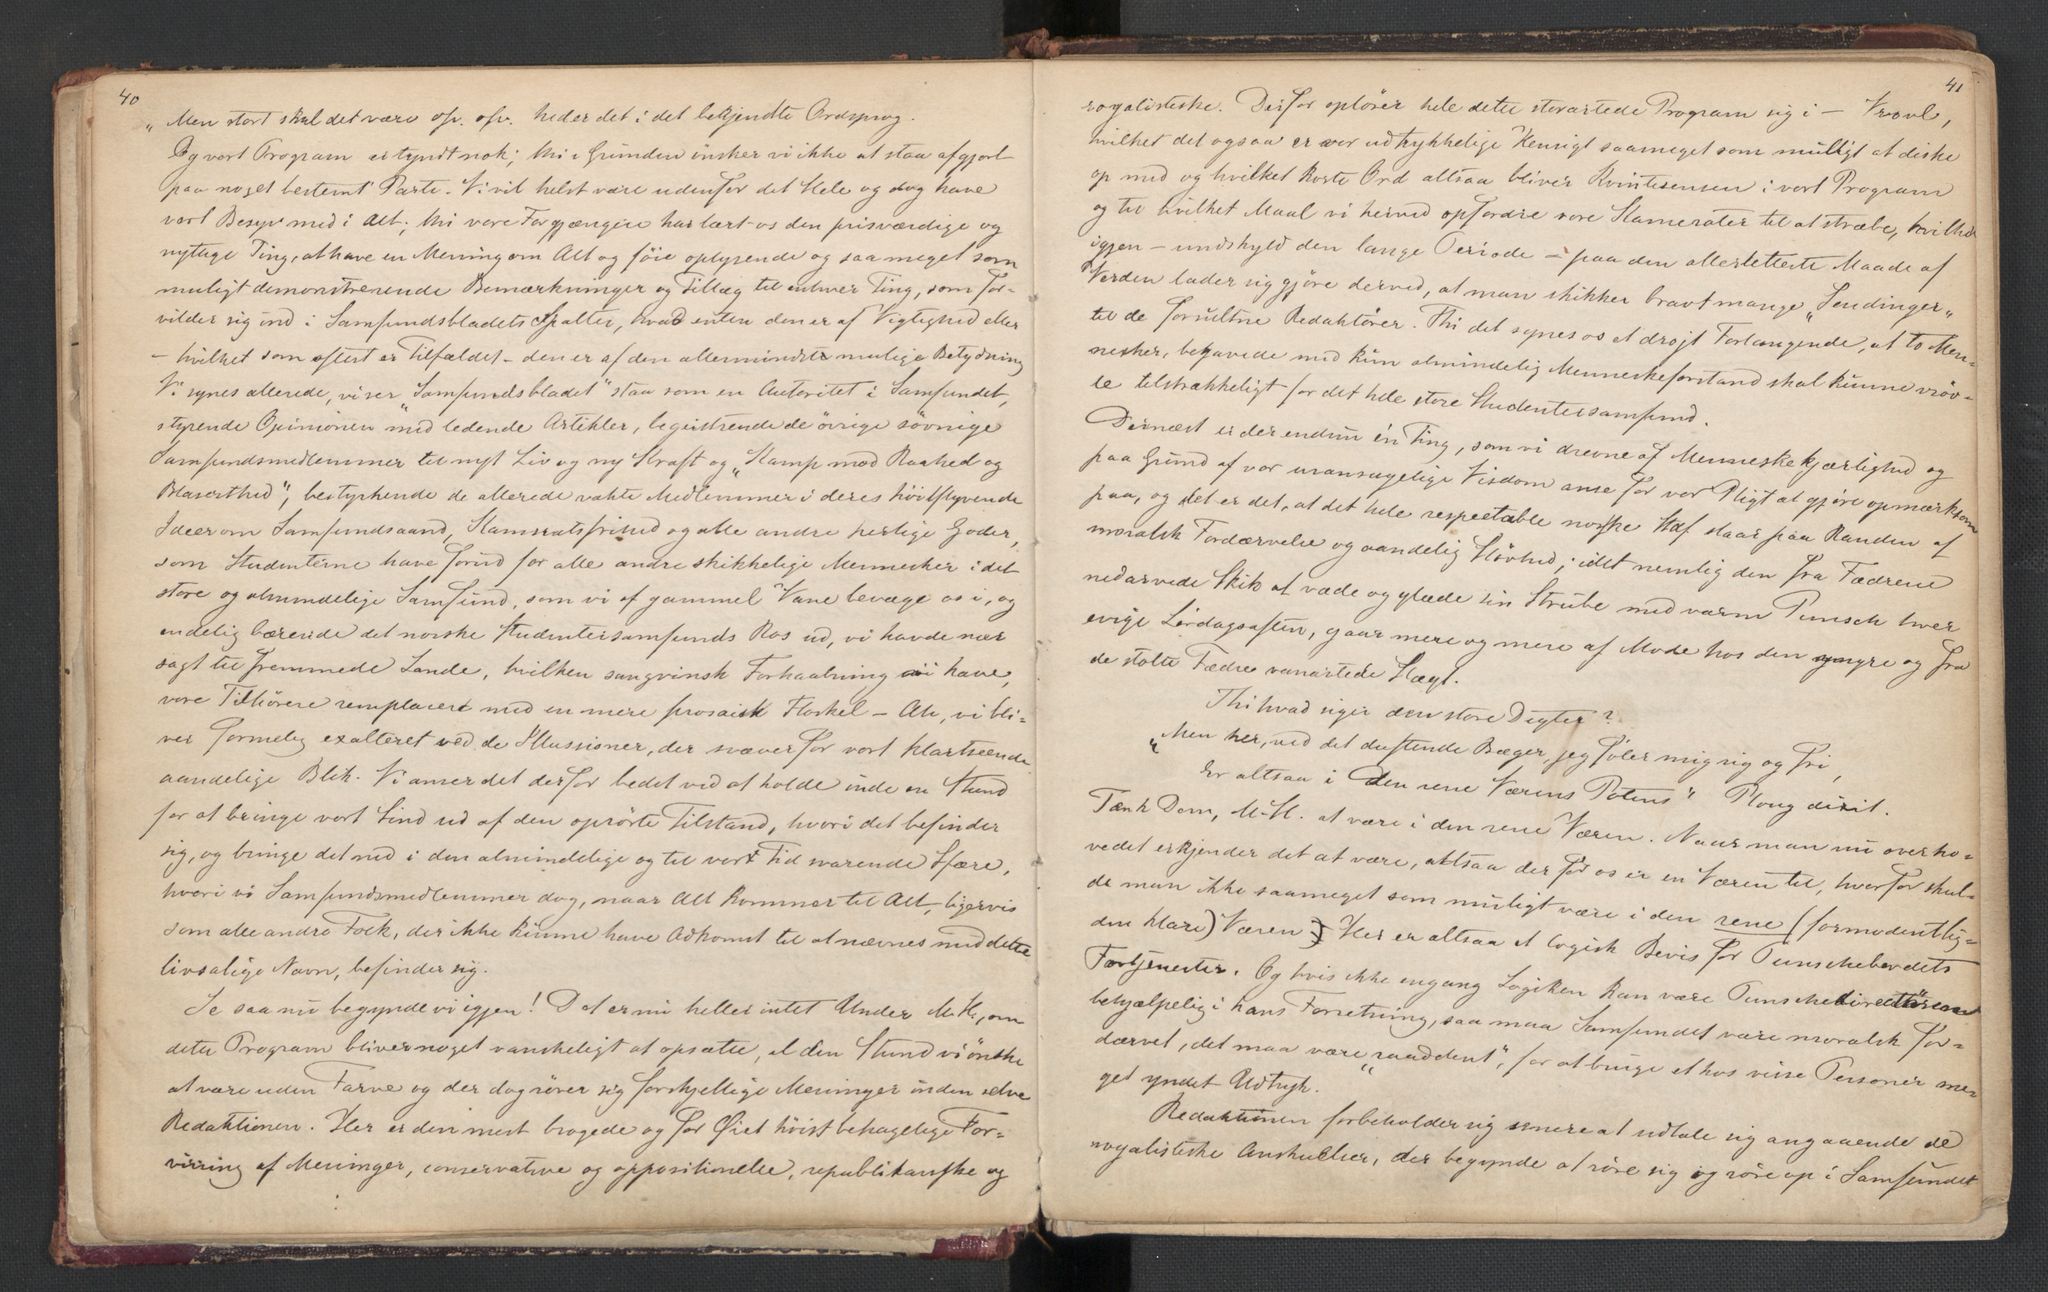 40
„Men stort skal det være osv. osv. heder det i det bekjendte Ordsprog.
Og vort Program er tyndt nok; thi i Grunden ønsker vi ikke at staa afgjort
paa noget bestemt Parti. Vi vil helst være udenfor det Hele og dog have
vort Besyv med i Alt; thi vore Forgjængere har lært os den prisværdige og
nyttige Ting, at have en Mening om Alt og føie oplysende og saa meget som
muligt demonstrerende Bemærkninger og Tillæg til enhver Ting, som for-
vilder sig ind i Samfundsbladets Spalter, hvad enten den er af Vigtighed eller
– hvilket som oftest er Tilfældet – den er af den allermindste mulige Betydning
Vi synes allerede, vi ser „Samfundsbladet" staa som en Autoritet i Samfundet,
styrende Opinionen med ledende Artikler, begeistrende de øvrige søvnige
Samfundsmedlemmer til nyt Liv og ny Kraft og „Kamp mod Raahed og
Blaserthed", bestyrkende de allerede vakte Medlemmer i deres høitflyvende
Ideer om Samfundsaand, Kameratsfrihed og alle andre herlige Goder,
som Studenterne have forud for alle andre skikkelige Mennesker i det
store og almindelige Samfund, som vi af gammel Vane bevæge os i, og
endelig bærende det norske Studentersamfunds Ros ud, vi havde nær
sagt til fremmede Lande, hvilken sangvinsk Forhaabning vi have,
vore Tilhørere remplaceret med en mere prosaisk Floskel – Ak, vi bli-
ver formelig exalteret ved de Illussioner, der svæver for vort klartseende
aandelige Blik. Vi anser det derfor bedst ved at holde inde en Stund
for at bringe vort Sind ud af den oprørte Tilstand, hvori det befinder
sig, og bringe det ned i den almindelige og til vort Tid svarende Sfære,
hvori vi Samfundsmedlemmer dog, naar Alt kommer til Alt, ligervis
som alle andre Folk, der ikke kunne have Adkomst til at nævnes med dette
livsalige Navn, befinder sig.
Se saa nu begynde vi igjen! Det er nu heller intet Under M.H., om
dette Program bliver noget vanskeligt at opsætte, al den Stund vi ønske
at være uden Farve og der dog rører sig forskjellige Meninger inden selve
Redaktionen. Her er den mest brogede og for Øiet høist behagelige For-
virring af Meninger, conservative og oppositionelle, republikanske og
41
royalistiske. Derfor opløser hele dette storartede Program sig i – Vrøvl,
hvilket det ogsaa er vor udtrykkelige Hensigt saameget som muligt at diske
op med og hvilket korte Ord altsaa bliver Kvintesensen i vort Program
og til hvilket Maal vi herved opfordre vore Kamerater til at stræbe, hvilket
igjen – undskyld den lange Periode – paa den allerletteste Maade af
Verden lader sig gjøre derved, at man skikker bravt mange „Sendinger„
til de forsultne Redaktører. Thi det synes os et drøjt Forlangende, at to Men-
nesker, begavede med kun almindelig Menneskeforstand skal kunne vrøv-
le tilstrækkeligt for det hele store Studentersamfund.
Dernæst er der endnu én Ting, som vi drevne af Menneskekjærlighed og
paa Grund af vor uransagelige Visdom anse for vor Pligt at gjøre opmærksom
paa, og det er det, at det hele respectable norske Stdf. staar paa Randen af
moralsk Fordærvelse og aandelig Sløvhed; idet nemlig den fra Fædrene
nedarvede Skik at væde og glæde sin Strube med varm Punsch hver
evige Lørdagsaften, gaar mere og mere af Mode hos den yngre og fra
de stolte Fædre vanartede Slægt.
Thi hvad siger den store Digter?
„Men her, ved det duftende Bæger, jeg føler mig rig og fri,
Er altsaa i den rene Værens Potens" Ploug dixit.
Tænk Dem, M.H. at være i den rene Væren. Naar man nu overho-
vedet erkjender det at være, altsaa der for os er en Væren til, hvorfor skul-
de man ikke saameget som muligt være i den rene (formodentlig-
den klare) Væren? Her er altsaa et logisk Bevis for Punschebordets
Fortjenester. Og hvis ikke engang Logiken kan være Punschedirectøren
behjælpelig i hans Forretning, saa maa Samfundet være moralsk for-
dærvet, det maa være „raaddent", for at bruge et hos visse Personer me-
get yndet Udtryk.
Redaktionen forbeholder sig senere at udtale sig angaaende de
royalistiske Anskuelser, der begynde at røre sig og røre op i Samfundet